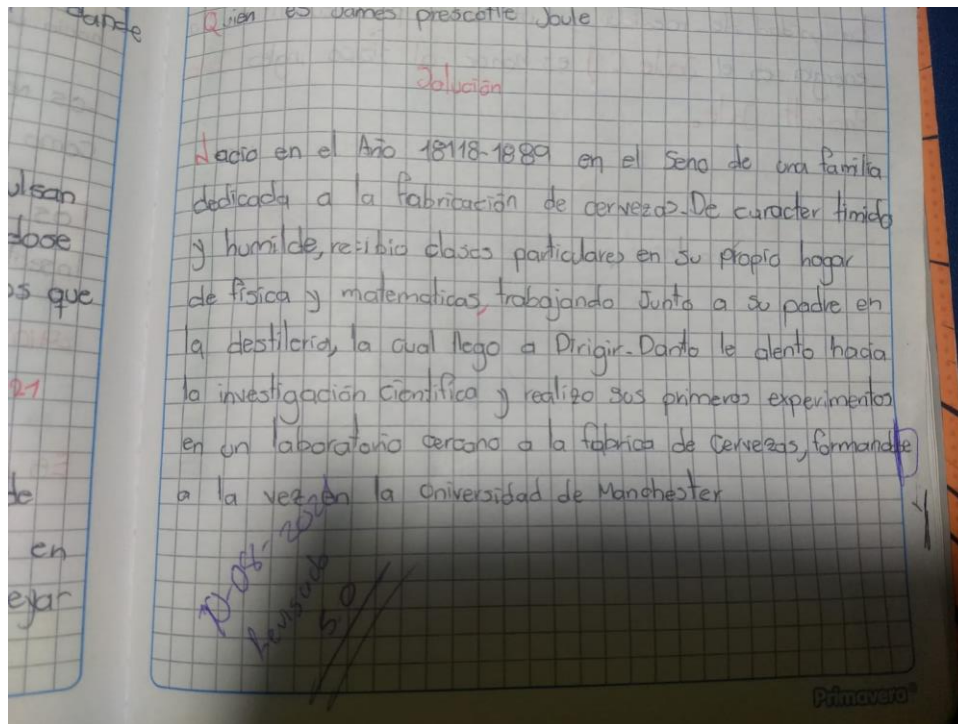 Quien es James prescotte Joule
Solución
Nacio en el Año 18118-1889 en el Seno de una familia
dedicada a la fabricación de cervezas. De caracter timido
y humilde, recibio clases particulares en su propio hogar
de fisica y matematicas, trabajando Junto a su padre en
la destileria, la cual llego a Dirigir. Danto le alento hacia
la investigación Cientifica y realizo sus primeros experimentos
en un laboratorio cercano a la fabrica de Cervezas, formandose
a la vez en la Universidad de Manchester
10-08-202
Revisado
5.0
ulsan
dose
os que
21
de
en
Primavera